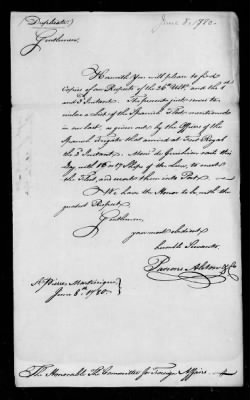 June 8. 1780.
(Duplicate)
Gentlemen,
Herewith You will please to find
Copies of our Respects of the 26th Ulto. and the 1
and 3 Instant. The present just serves to
inclose a List of the Spanish Fleet mentioned
in our last, as given out by the Officers of the
Spanish frigate that arrived at Fort Royal
the 3 Instant. Adm. de Guichen sails this
Day with 15 or 17 Ships of the Line, to meet
the Fleet, and escort them into Port.
We have the Honor to be with the
greatest Respect
Gentlemen,
your most obedient
humble Servants
Parsons Alston & Co
St. Pierre Martinique
June 8th 1780.
The Honorable The Committee for Foreign Affairs